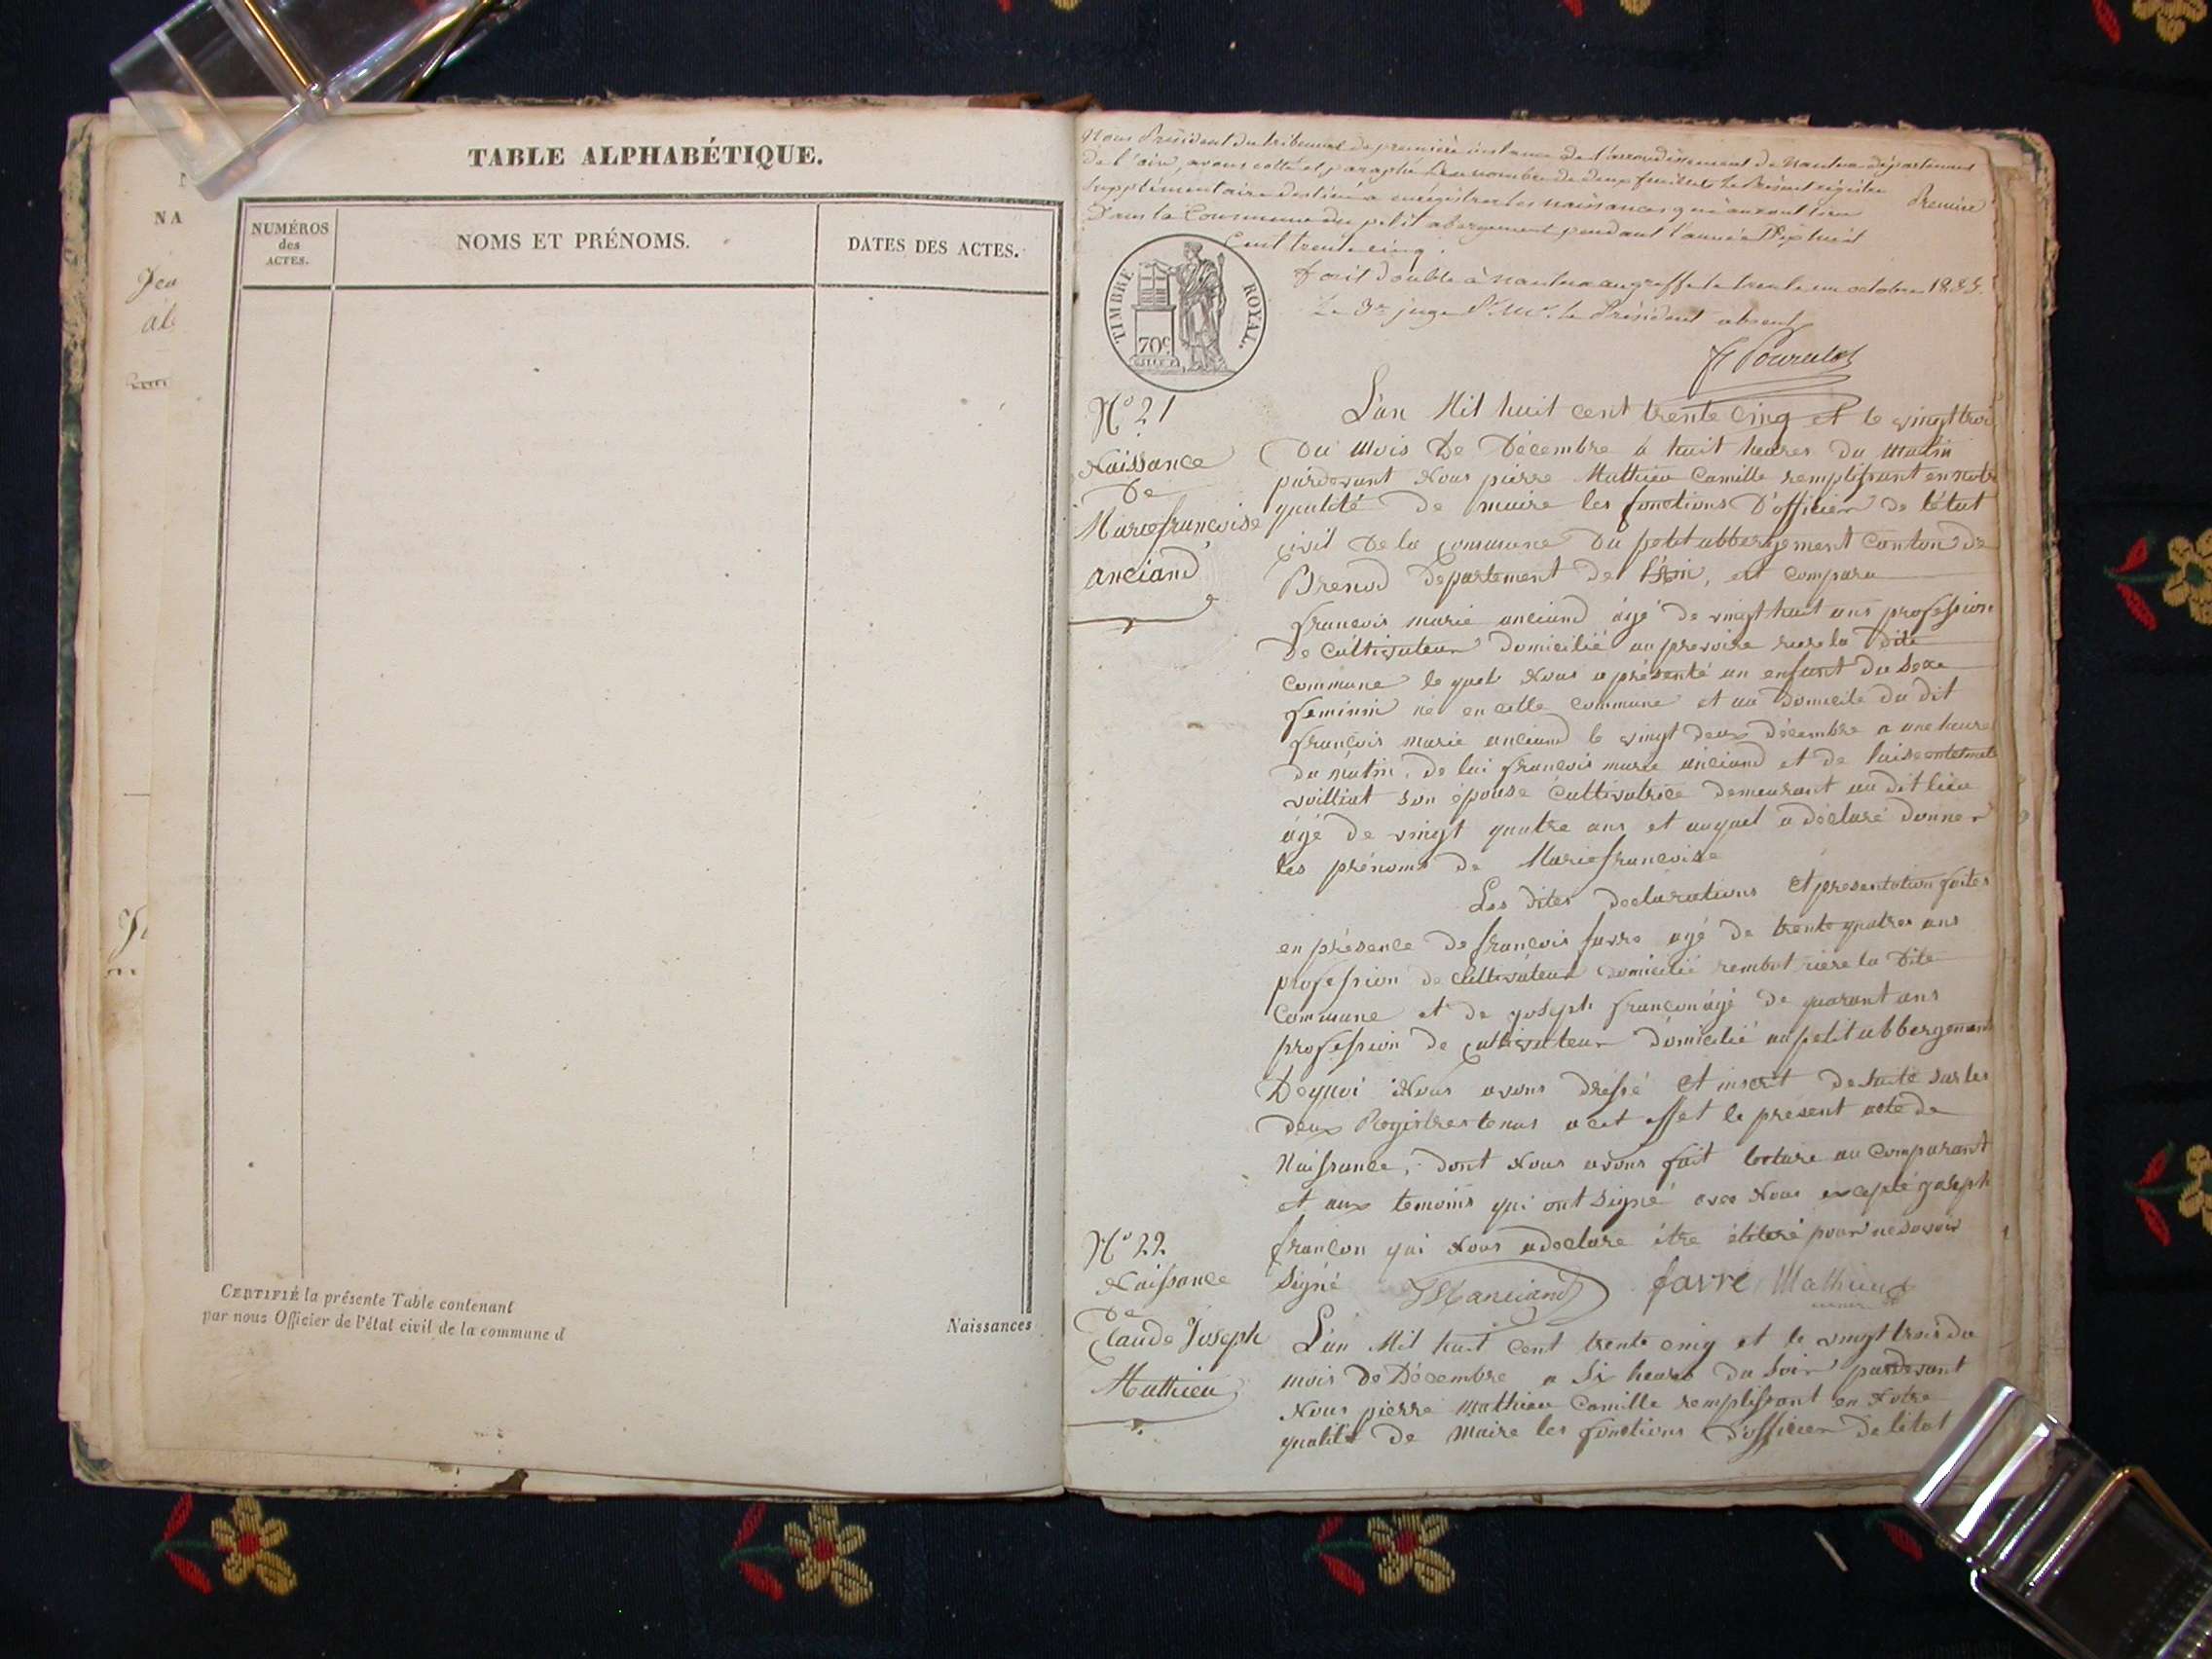 NA
Jea
TABLE ALPHABÉTIQUE.
NUMÉROS
des
ACTES.
NOMS ET PRÉNOMS.
DATES DES ACTES.
CERTIFIÉ la présente Table contenant
par nous Officier de l'état civil de la commune d
Naissances
Nous Président du tribunal de première instance de l'arrondissement de Nantua département
de l'ain, avons cotté et paraphé au nombre de deux feuillets le Présent régistre
Supplémentaire destiné a enrégistrer les naissances qui auront lieu
Dans la Commune du petit abergement pendant l'année Dix huit
Cent trente cinq.
Premier
fait double à Nantua au greffe le trente un octobre 1835.
Le 3e juge Pr. Mr. le Président absent
TIMBRE ROYAL.
70c
N° 21
Naissance
De
Marie françoise
anciand
L'an Mil huit cent trente cinq et le vingt trois
Du Mois De Décembre à huit heures du matin
pardevant Nous pierre Mathieu Camille remplissant en notre
qualité de maire les fonctions D'officier de l'état
civil De la commune Du petit abbergement Canton de
Brenod departement de l'Ain, est comparu
françois marie anciand âgé de vingt huit ans profession
De Cultivateur Domicilié au prevoire riere la Dite
Commune le quel Nous a présenté un enfant Du Sexe
feminin né en cette commune et au Domicile Du dit
françois marie anciand le vingt deux décembre a une heure
du matin. De lui françois marie anciand et de
voilliat son épouse Cultivatrice demeurant au dit lieu
âgé de vingt quatre ans et auquel a déclaré donner
les prénoms de Marie françoise
Les dites declarations Et presentation faites
en présence De françois favre agé de trente quatres ans
profession de Cultivateur domicilié rembot riere la Dite
Commune et de joseph françon âgé de quarant ans
profession de Cultivateur domicilié au petit abbergement
De quoi Nous avons dressé et inscrit de Suite Sur les
deux Registres tenus a cet effet le présent acte de
Naissance, dont Nous avons fait lecture au Comparant
et aux temoins qui ont Signé avec Nous excepté joseph
françon qui Nous a declare être élitéré pour ne Savoir
Signé
favre Mathieu
N° 22
Naissance
De
Claude Joseph
Mathieu
L'an Mil huit Cent trente cinq et le vingt trois du
mois de Décembre a Si heures du Soir pardevant
Nous pierre Mathieu Camille remplissant en Notre
qualité de Maire les fonctions d'officier De létat